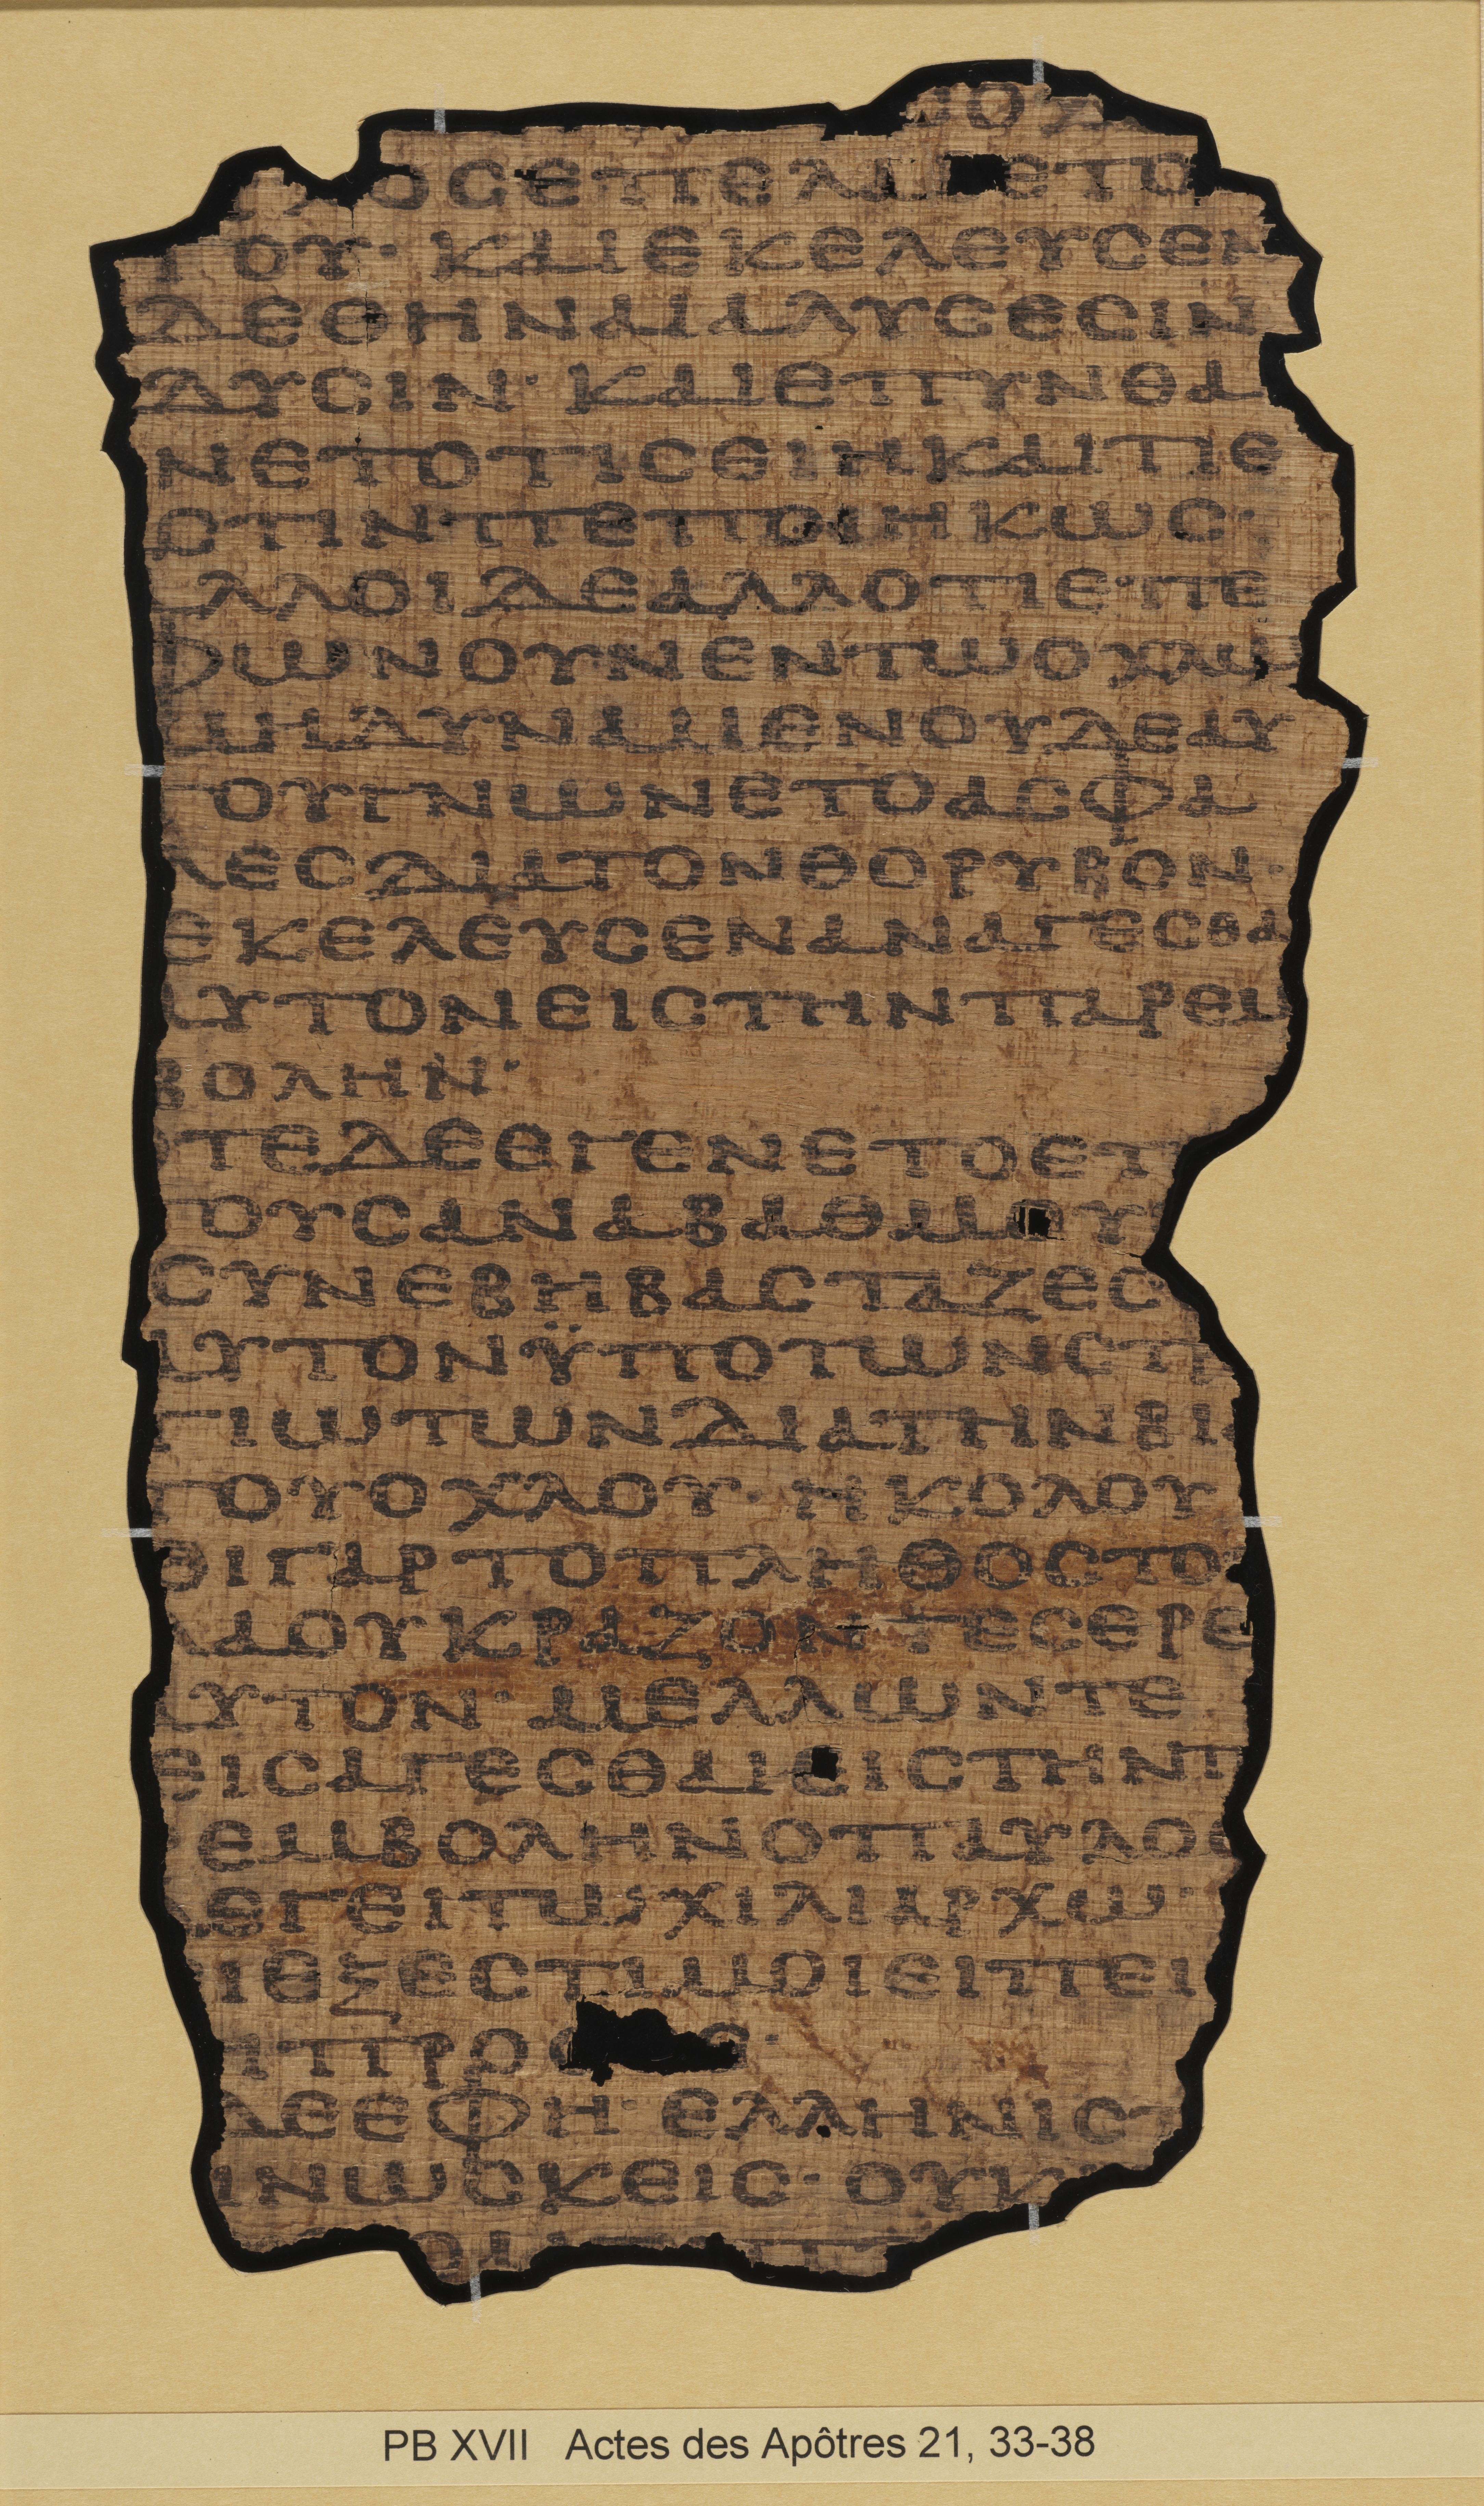 ΝΟΥ
ΧΟΣΕΠΕΛΑΒΕΤΟ
ΤΟΥ· ΚΑΙΕΚΕΛΕΥϹΕΝ
ΔΕΘΗΝΑΙΑΛΥϹΕϹΙΝ
ΔΥϹΙΝ· ΚΑΙΕΠΥΝΘΑ
ΝΕΤΟΤΙϹΕΙΗΚΑΙΤΙΕ
ϹΤΙΝΠΕΠΟΙΗΚΩϹ·
ΑΛΛΟΙΔΕΑΛΛΟΤΙΕ·ΠΕ
ΦΩΝΟΥΝΕΝΤΩΟΧΛΩ
ΜΗΔΥΝΑΜΕΝΟΥΔΕΑΥ
ΤΟΥΓΝΩΝΕΤΟΑϹΦΑ
ΛΕϹΔΙΑΤΟΝΘΟΡΥΒΟΝ·
ΕΚΕΛΕΥϹΕΝΑΝΑΓΕϹΘΑ
ΑΥΤΟΝΕΙϹΤΗΝΠΑΡΕΜ
ΒΟΛΗΝ·
ΟΤΕΔΕΕΓΕΝΕΤΟΕΠ
ΤΟΥϹΑΝΑΒΑΘΜΟΥ
ϹΥΝΕΒΗΒΑϹΤΑΖΕϹ
ΑΥΤΟΝΫΠΟΤΩΝϹΤΡ
ΤΙΩΤΩΝΔΙΑΤΗΝΒΙ
ΤΟΥΟΧΛΟΥ· ΗΚΟΛΟΥ
ΘΙΓΑΡΤΟΠΛΗΘΟϹΤΟ
ΛΑΟΥΚΡΑΖΟΝΤΕϹΕΡΕ
ΑΥΤΟΝ· ΜΕΛΛΩΝΤΕ
ΕΙϹΑΓΕϹΘΑΙΕΙϹΤΗΝΠ
ΡΕΜΒΟΛΗΝΟΠΑΥΛΟϹ
ΛΕΓΕΙΤΩΧΙΛΙΑΡΧΩ·
ΙΕΞΕϹΤΙΜΟΙΕΙΠΕΙ
ΙΠΡΟϹ
ΔΕΕΦΗ· ΕΛΛΗΝΙϹΤ
ΙΝΩϹΚΕΙϹ· ΟΥΚ
PB XVII Actes des Apôtres 21, 33-38